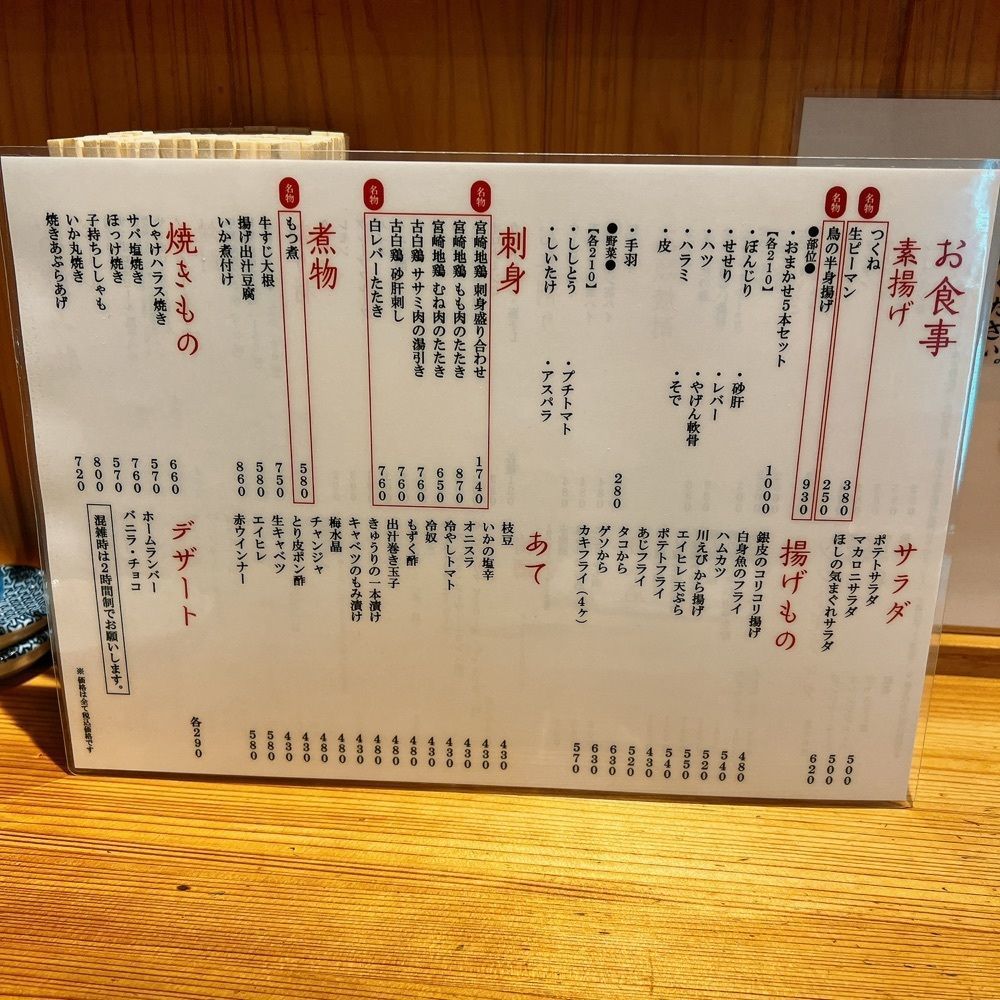 お食事
素揚げ
名物
つくね 380
生ピーマン 250
名物
鳥の半身揚げ 930
●部位●
・おまかせ5本セット 1000
【各210】
・ぼんじり
・せせり ・砂肝
・ハツ ・レバー
・ハラミ ・やげん軟骨
・皮 ・そで
・手羽 280
●野菜●
【各210】
・ししとう ・プチトマト
・しいたけ ・アスパラ
刺身
名物
宮崎地鶏 刺身盛り合わせ 1740
宮崎地鶏 もも肉のたたき 870
宮崎地鶏 むね肉のたたき 650
古白鶏 ササミ肉の湯引き 760
古白鶏 砂肝刺し 760
名物
白レバーたたき 760
煮物
名物
もつ煮 580
牛すじ大根 750
揚げ出汁豆腐 580
いか煮付け 860
焼きもの
しゃけハラス焼き 660
サバ塩焼き 570
ほっけ焼き 760
子持ちししゃも 570
いか丸焼き 800
焼きあぶらあげ 720
サラダ
ポテトサラダ 500
マカロニサラダ 500
ほしの気まぐれサラダ 620
揚げもの
銀皮のコリコリ揚げ 480
白身魚のフライ 540
ハムカツ 520
川えびから揚げ 550
エイヒレ 天ぷら 540
ポテトフライ 430
あじフライ 520
タコから 630
ゲソから 630
カキフライ(4ヶ) 570
あて
枝豆 430
いかの塩辛 430
オニスラ 430
冷やしトマト 430
冷奴 430
もずく酢 480
出汁巻き玉子 480
きゅうりの一本漬け 480
キャベツのもみ漬け 430
梅水晶 480
チャンジャ 480
とり皮ポン酢 430
生キャベツ 430
エイヒレ 580
赤ウインナー 580
デザート
ホームランバー
バニラ・チョコ 各290
混雑時は2時間制でお願いします。
※価格は全て税込価格です